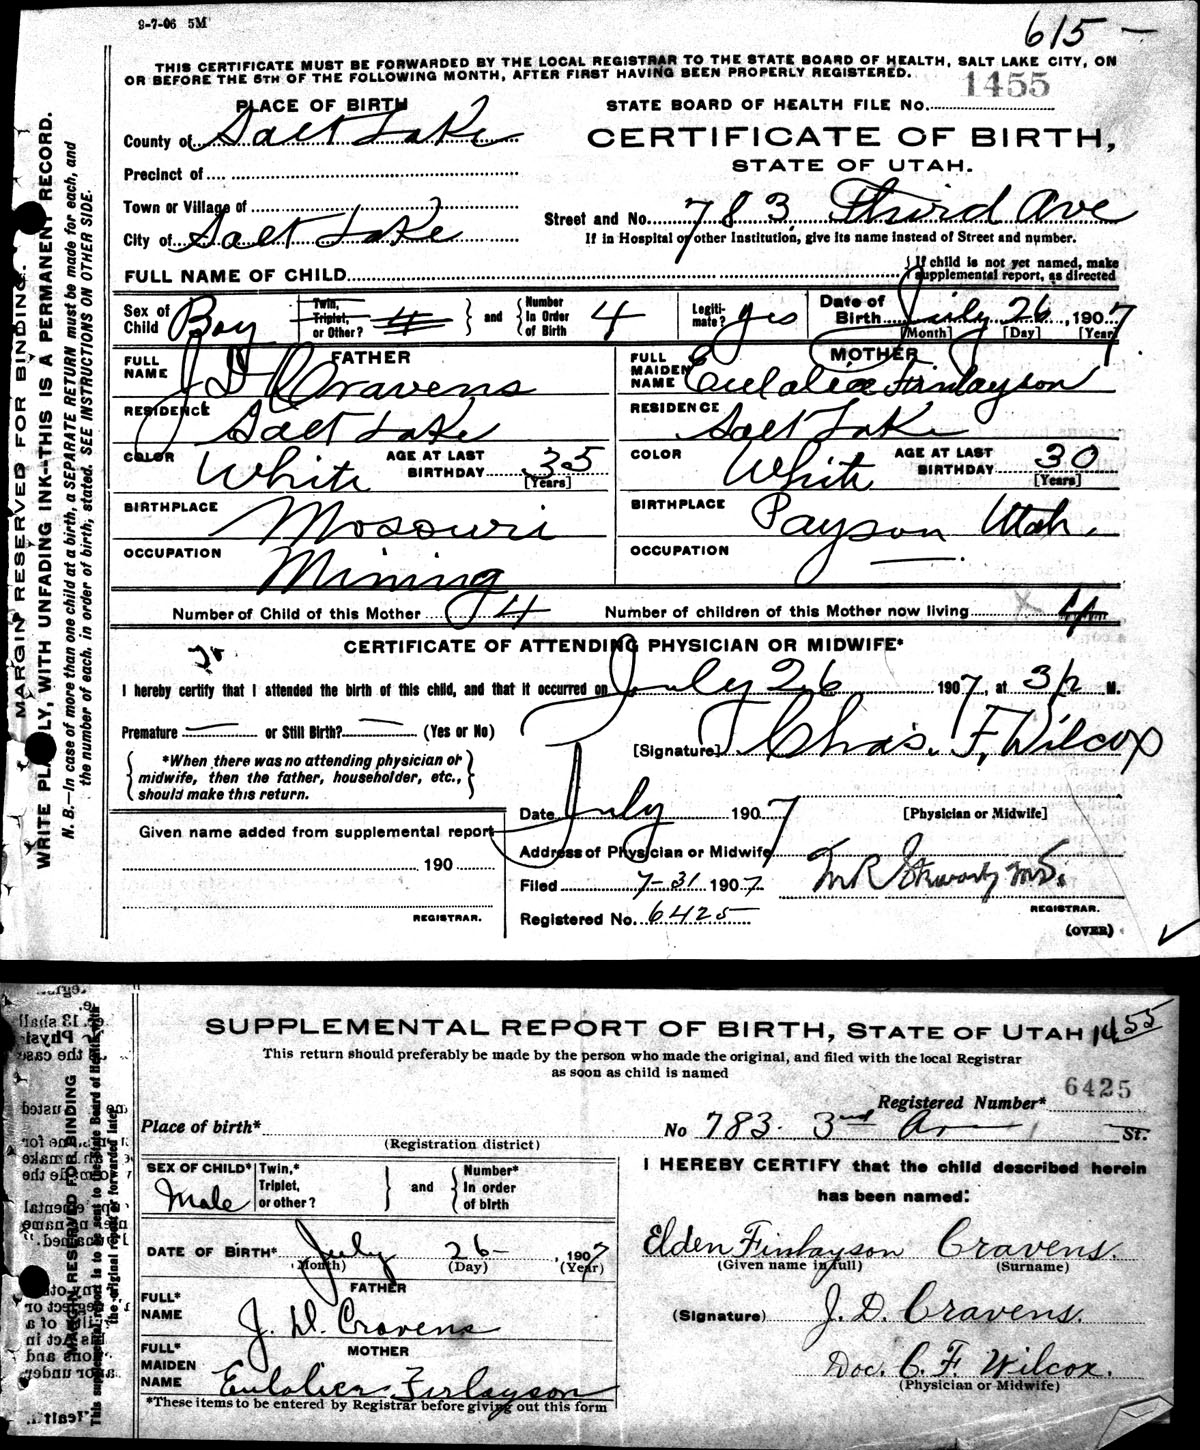 9-7-06 5M
615 —
THIS CERTIFICATE MUST BE FORWARDED BY THE LOCAL REGISTRAR TO THE STATE BOARD OF HEALTH, SALT LAKE CITY, ON
OR BEFORE THE 5TH OF THE FOLLOWING MONTH, AFTER FIRST HAVING BEEN PROPERLY REGISTERED.
1455
PLACE OF BIRTH
STATE BOARD OF HEALTH FILE No.
County of Salt Lake
CERTIFICATE OF BIRTH,
STATE OF UTAH.
Precinct of
Town or Village of
Street and No. 783 Third Ave
City of Salt Lake
If in Hospital or other Institution, give its name instead of Street and number.
FULL NAME OF CHILD
If child is not yet named, make
supplemental report, as directed
Sex of Child Boy
Twin, Triplet, or Other? 4
and
Number In Order of Birth 4
Legiti-mate? yes
Date of Birth July 26, 1907
[Month] [Day] [Year]
FATHER
FULL NAME J D Cravens
RESIDENCE Salt Lake
COLOR White
AGE AT LAST BIRTHDAY 35
[Years]
BIRTHPLACE Mosouri
OCCUPATION Mining
MOTHER
FULL MAIDEN NAME Eulalie Finlayson
RESIDENCE Salt Lake
COLOR White
AGE AT LAST BIRTHDAY 30
[Years]
BIRTHPLACE Payson Utah.
OCCUPATION —
Number of Child of this Mother 4
Number of children of this Mother now living 4
CERTIFICATE OF ATTENDING PHYSICIAN OR MIDWIFE*
I hereby certify that I attended the birth of this child, and that it occurred on July 26 1907, at 3 1/2 M.
Premature — or Still Birth? — (Yes or No)
[Signature] Chas. F. Wilcox
*When there was no attending physician or
midwife, then the father, householder, etc.,
should make this return.
Date July 1907
[Physician or Midwife]
Given name added from supplemental report
190
Address of Physician or Midwife
Filed 7-31 1907
M.D.
REGISTRAR.
Registered No. 6425
REGISTRAR.
(OVER)
MARGIN RESERVED FOR BINDING.
WRITE PLAINLY, WITH UNFADING INK—THIS IS A PERMANENT RECORD.
N. B.—In case of more than one child at a birth, a SEPARATE RETURN must be made for each, and
the number of each, in order of birth, stated. SEE INSTRUCTIONS ON OTHER SIDE.
SUPPLEMENTAL REPORT OF BIRTH, STATE OF UTAH 1455
This return should preferably be made by the person who made the original, and filed with the local Registrar
as soon as child is named
Registered Number* 6425
Place of birth*
(Registration district)
No 783 3rd Av St.
SEX OF CHILD* Male
Twin,* Triplet, or other?
and
Number* In order of birth
I HEREBY CERTIFY that the child described herein
has been named:
DATE OF BIRTH* July 26- 1907
(Month) (Day) (Year)
Elden Finlayson Cravens.
(Given name in full) (Surname)
FATHER
FULL* NAME J. D. Cravens
(Signature) J. D. Cravens.
MOTHER
FULL* MAIDEN NAME Eulalie Finlayson
Doc. C. F. Wilcox.
(Physician or Midwife)
*These items to be entered by Registrar before giving out this form
MARGIN RESERVED FOR BINDING
This supplemental report is to be sent to the State Board of Health with
the original report or forwarded later